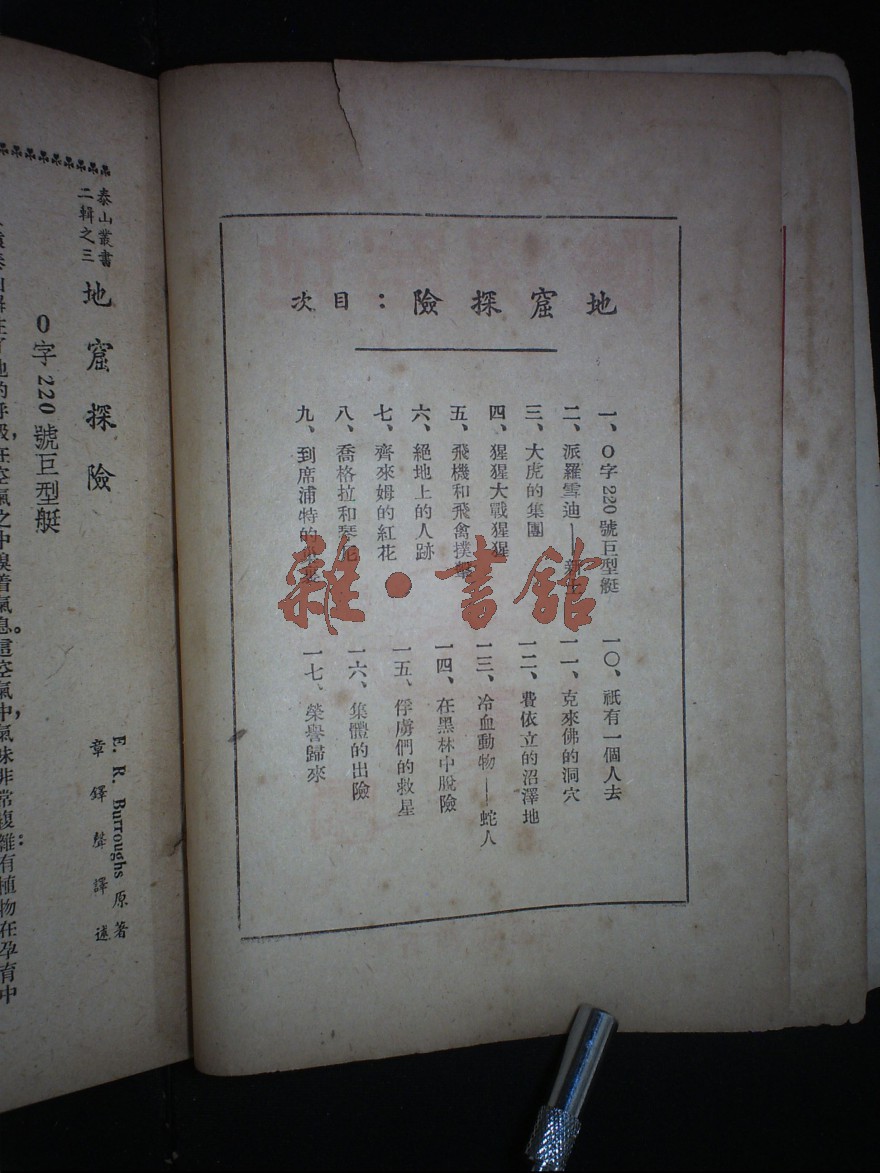 地窟探險：目次
一、O字220號巨型艇
二、派羅雪迪——新士
三、大虎的集團
四、猩猩大戰猩猩
五、飛機和飛禽撲擊
六、絕地上的人跡
七、齊來姆的紅花
八、喬格拉和琴妮
九、到席浦特的
一〇、祇有一個人去
一一、克來佛的洞穴
一二、費依立的沼澤地
一三、冷血動物——蛇人
一四、在黑林中脫險
一五、俘虜們的救星
一六、集體的出險
一七、榮譽歸來
雜·書館
泰山叢書
二輯之三
地窟探險
E. R. Burroughs 原著
章鐸聲譯述
O字220號巨型艇
的呼吸，在空氣之中嗅着氣息。這空氣中，氣味非常複雜：有植物在孕育中